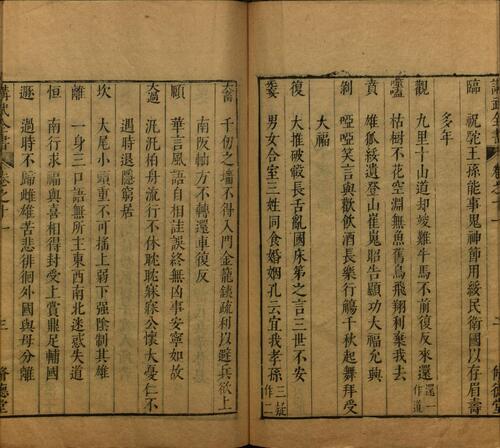 臨 祝鮀王孫能事鬼神節用綏民衛國以存眉壽
多年
觀 九里十山道却峻難牛馬不前復反來還 還一作道
噬 枯樹不花空淵無魚舊鳥飛翔利棄我去
賁 雄狐綏遺登山崔嵬昭告顯功大福允興
剝 啞啞笑言與歡飲酒長樂行觴千秋起舞拜受
大福
復 大推破轂長舌亂國床第之言三世不安
男女合室三姓同食婚姻孔云宜我孝孫 三疑作二
大畜 千仞之墻不得入門金龍鐵疏利以避兵欲上
南阪軸方不轉還車復反
頤 華言風語自相詿誤終無凶事安寧如故
大過 汎汎柏舟流行不休耿耿寐寐公懷大憂仁不
遇時退隱窮居
坎 大尾小頭重不可搖上弱下强陰制其雄
離 一身三口語無所主東西南北迷惑失道
恒 南行求福與喜相得封受上賞鼎足輔國
遯 過時不歸雌雄苦悲徘徊外國與母分離
講武全書 卷之十一
三
脩德堂